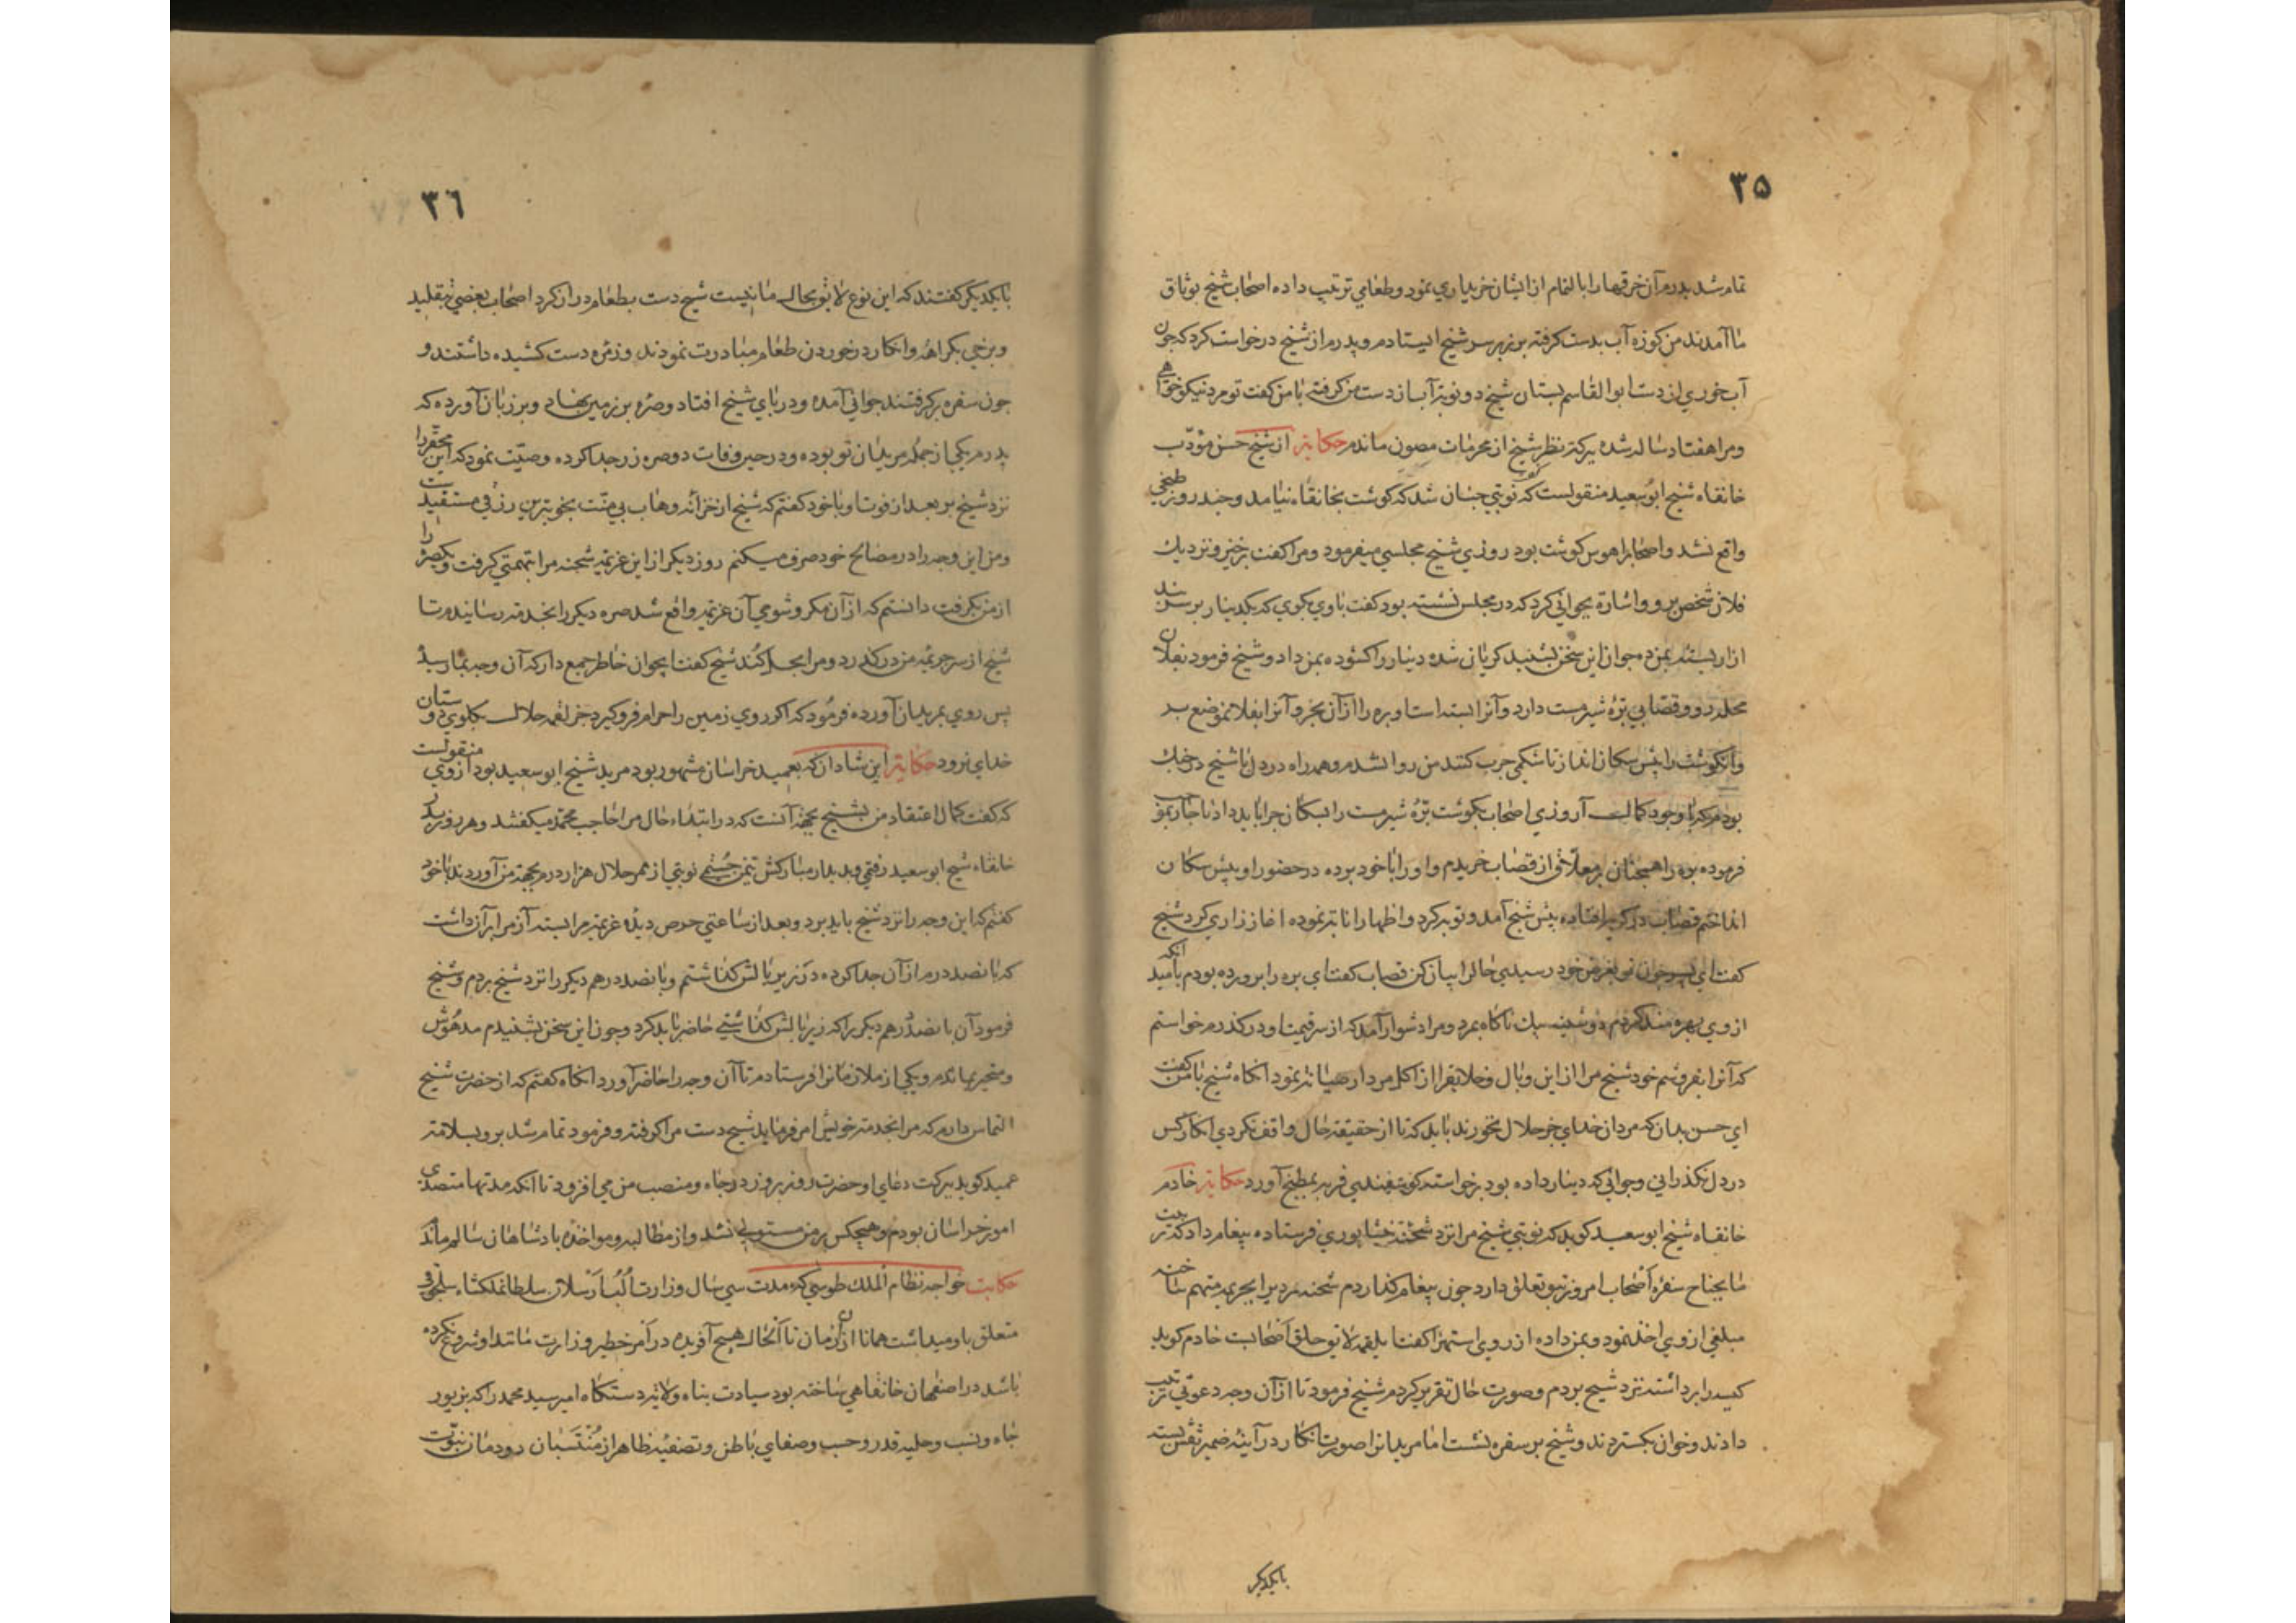 ۳۵
تمام شد پدرم آن خرقها را بالتمام از ایشان خریداری نمود و طعامی ترتیب داده اصحاب شیخ بوثاق
ما آمدند من کوزه آب بدست کرفته بر زبر سر شیخ ایستادم و پدرم از شیخ درخواست کرد که چون
آب خوری از دست ابوالقاسم بستان شیخ دو نوبة آب از دست من کرفته با من کفت تو مرد نیکو خواهی
ومرا هفتاد ساله شده ببرکة نظر شیخ از محرمات مصون ماندم حکایة از شیخ حسن مؤدب
خانقاه شیخ ابو سعید منقولست که نوبتی چنان شد که کوشت بخانقاه نیامد وچند روز طبخی
واقع نشد واصحابرا هوس کوشت بود روزی شیخ مجلسی میفرمود ومرا کفت برخیز ونزدیک
فلان شخص برو واشارة بجوانی کرد که در مجلس نشسته بود کفت با وی بکوی که یکدینار بر سر بند
ازار بسته بمن ده جوان این سخن بشنید کریان شده دینار را کشوده بمن داد وشیخ فرمود بفلان
محله رو وقصابی برهٔ شیرمست دارد وآنرا بسته است او بره را از آن بخر وآنرا بفلانموضع بر
وآنکوشت را پیش سکان انداز تا شکمی چرب کنند من روانشدم وهمه راه در دل با شیخ در جنک
بودم که با وجود کمال آرزوی اصحاب بکوشت برهٔ شیرمست را بسکان چرا باید داد ناچار بموجب
فرموده بره را همچنان بر معلاق از قصاب خریدم واو را با خود برده در حضور او پیش سکان
انداختم قصاب در کریه افتاده پیش شیخ آمد وتوبه کرد واظهار انابة نموده اغاز زاری کرد شیخ
کفت ای پیر جوان تو بغرض خود رسیدی حالرا بیان کن قصاب کفت ای بره را پرورده بودم بامید آنکه
از وی بهره مند کردم دوشینه سبک ناکاه بمرد ومرا دشوار آمد که از سر قیمت او درکذرم خواستم
که آنرا بفروشم خود شیخ مرا از این وبال وخلایقرا از اکل مردار صیانة نمود انکاه شیخ با من کفت
ای حسن بدان که مردان خدای جز حلال نخورند باید که تا از حقیقة حال واقف نکردی انکار کس
در دل نکذرانی وجوانی که دینار داده بود برخواسته کوسفندی فربه بمطبخ آورد حکایة خادم
خانقاه شیخ ابو سعید کوید که نوبتی شیخ مرا نزد شحنة نیشاپوری فرستاده پیغام داد که ترتیب
ما یحتاج سفره اصحاب امروز بتو تعلق دارد چون پیغام کذاردم شحنه مردیرا بجریمه متهم ساخته
مبلغی از وی اخذ نمود وبمن داده از روی استهزا کفت این لقمه لایق حلق اصحابست خادم کوید
کیسه را برداشته نزد شیخ بردم وصورت حال تقریر کردم شیخ فرمود تا از آن وجه دعوتی ترتیب
دادند وخوان بکستردند وشیخ بر سفره نشست اما مریدانرا صورت انکار در آینه ضمیر نقش بسته
بایکدیکر
۳٦
بایکدیکر کفتند که این نوع لایق بحال ما نیست شیخ دست بطعام دراز کرد اصحاب بعضی بتقلید
وبرخی بکراهة وانکار در خوردن طعام مبادرت نمودند وزمرهٔ دست کشیده داشتند و
چون سفره برکرفتند جوانی آمده ودر پای شیخ افتاد وصره بر زمین نهاد وبر زبان آورده که
پدرم یکی از جمله مریدان تو بوده ودر حین وفات دو صره زر جدا کرده وصیت نمود که این محقر را
نزد شیخ بر بعد از فوت او با خود کفتم که شیخ از خزانه وهاب بی منت بخوبترین رزقی مستفید است
ومن این وجه را در مصالح خود صرف میکنم روز دیکر از این عزیمة شحنه مرا بتهمتی کرفت ویکصره را
از من بکرفت دانستم که از آن مکر وشومی آن عزیمة واقع شد صره دیکر را بخدمة رسانیدم تا
شیخ از سر جریمه من درکذرد ومرا بحل کند شیخ کفت ایجوان خاطر جمع دار که آن وجه بما رسید
پس روی بمریدان آورده فرمود که اکر روی زمین را حرام فرو کیرد جز لقمه حلال بکلوی دوستان
خدای نرود حکایة ابن شادان که بعمید خراسان مشهور بود مرید شیخ ابو سعید بود از وی منقولست
که کفت کمال اعتقاد من بشیخ بجهة آنست که در ابتداء حال مرا حاجب محمد میکفتند وهر روز بدر
خانقاه شیخ ابو سعید رفتمی وبدیدار مبارکش تیمن جستمی نوبتی از ممر حلال هزار درم بجهة من آوردند با خود
کفتم که این وجه را نزد شیخ باید برد وبعد از ساعتی حرص دیدهٔ عزیمة مرا بسته آز مرا بر آن داشت
که پانصد درم از آن جدا کرده در زیر بالش کذاشتم وپانصد درهم دیکر را نزد شیخ بردم وشیخ
فرمود آن پانصد درهم دیکر را که زیر بالش کذاشتی حاضر باید کرد وچون این سخن بشنیدم مدهوش
ومتحیر بماندم ویکی از ملازمانرا فرستادم تا آن وجه را حاضر آورد انکاه کفتم که از حضرت شیخ
التماس دارم که مرا بخدمة خویش امر فرماید شیخ دست مرا کرفته وفرمود تمام شد برو بسلامة
عمید کوید ببرکت دعای او حضرت روز بروز در جاه ومنصب من می افزود تا آنکه مدتها متصدی
امور خراسان بودم وهیچکس بر من مستولی نشد واز مطالبه ومواخذه پادشاهان سالم ماند
حکایت خواجه نظام الملک طوسی که مدت سی سال وزارت آلب ارسلان سلطانملکشاه سلجوقی
متعلق باو میداشت همانا از آن زمان تا آنحال هیچ آفریده در امر خطیر وزارت مانند او شروع نکرده
باشد در اصفهان خانقاهی ساخته بود سیادت پناه ولایة دستکاه امیر سید محمد را که بزیور
جاه ونسب وحلیه قدر وحسب وصفای باطن وتصفیه ظاهر از منتسبان دودمان نبوت